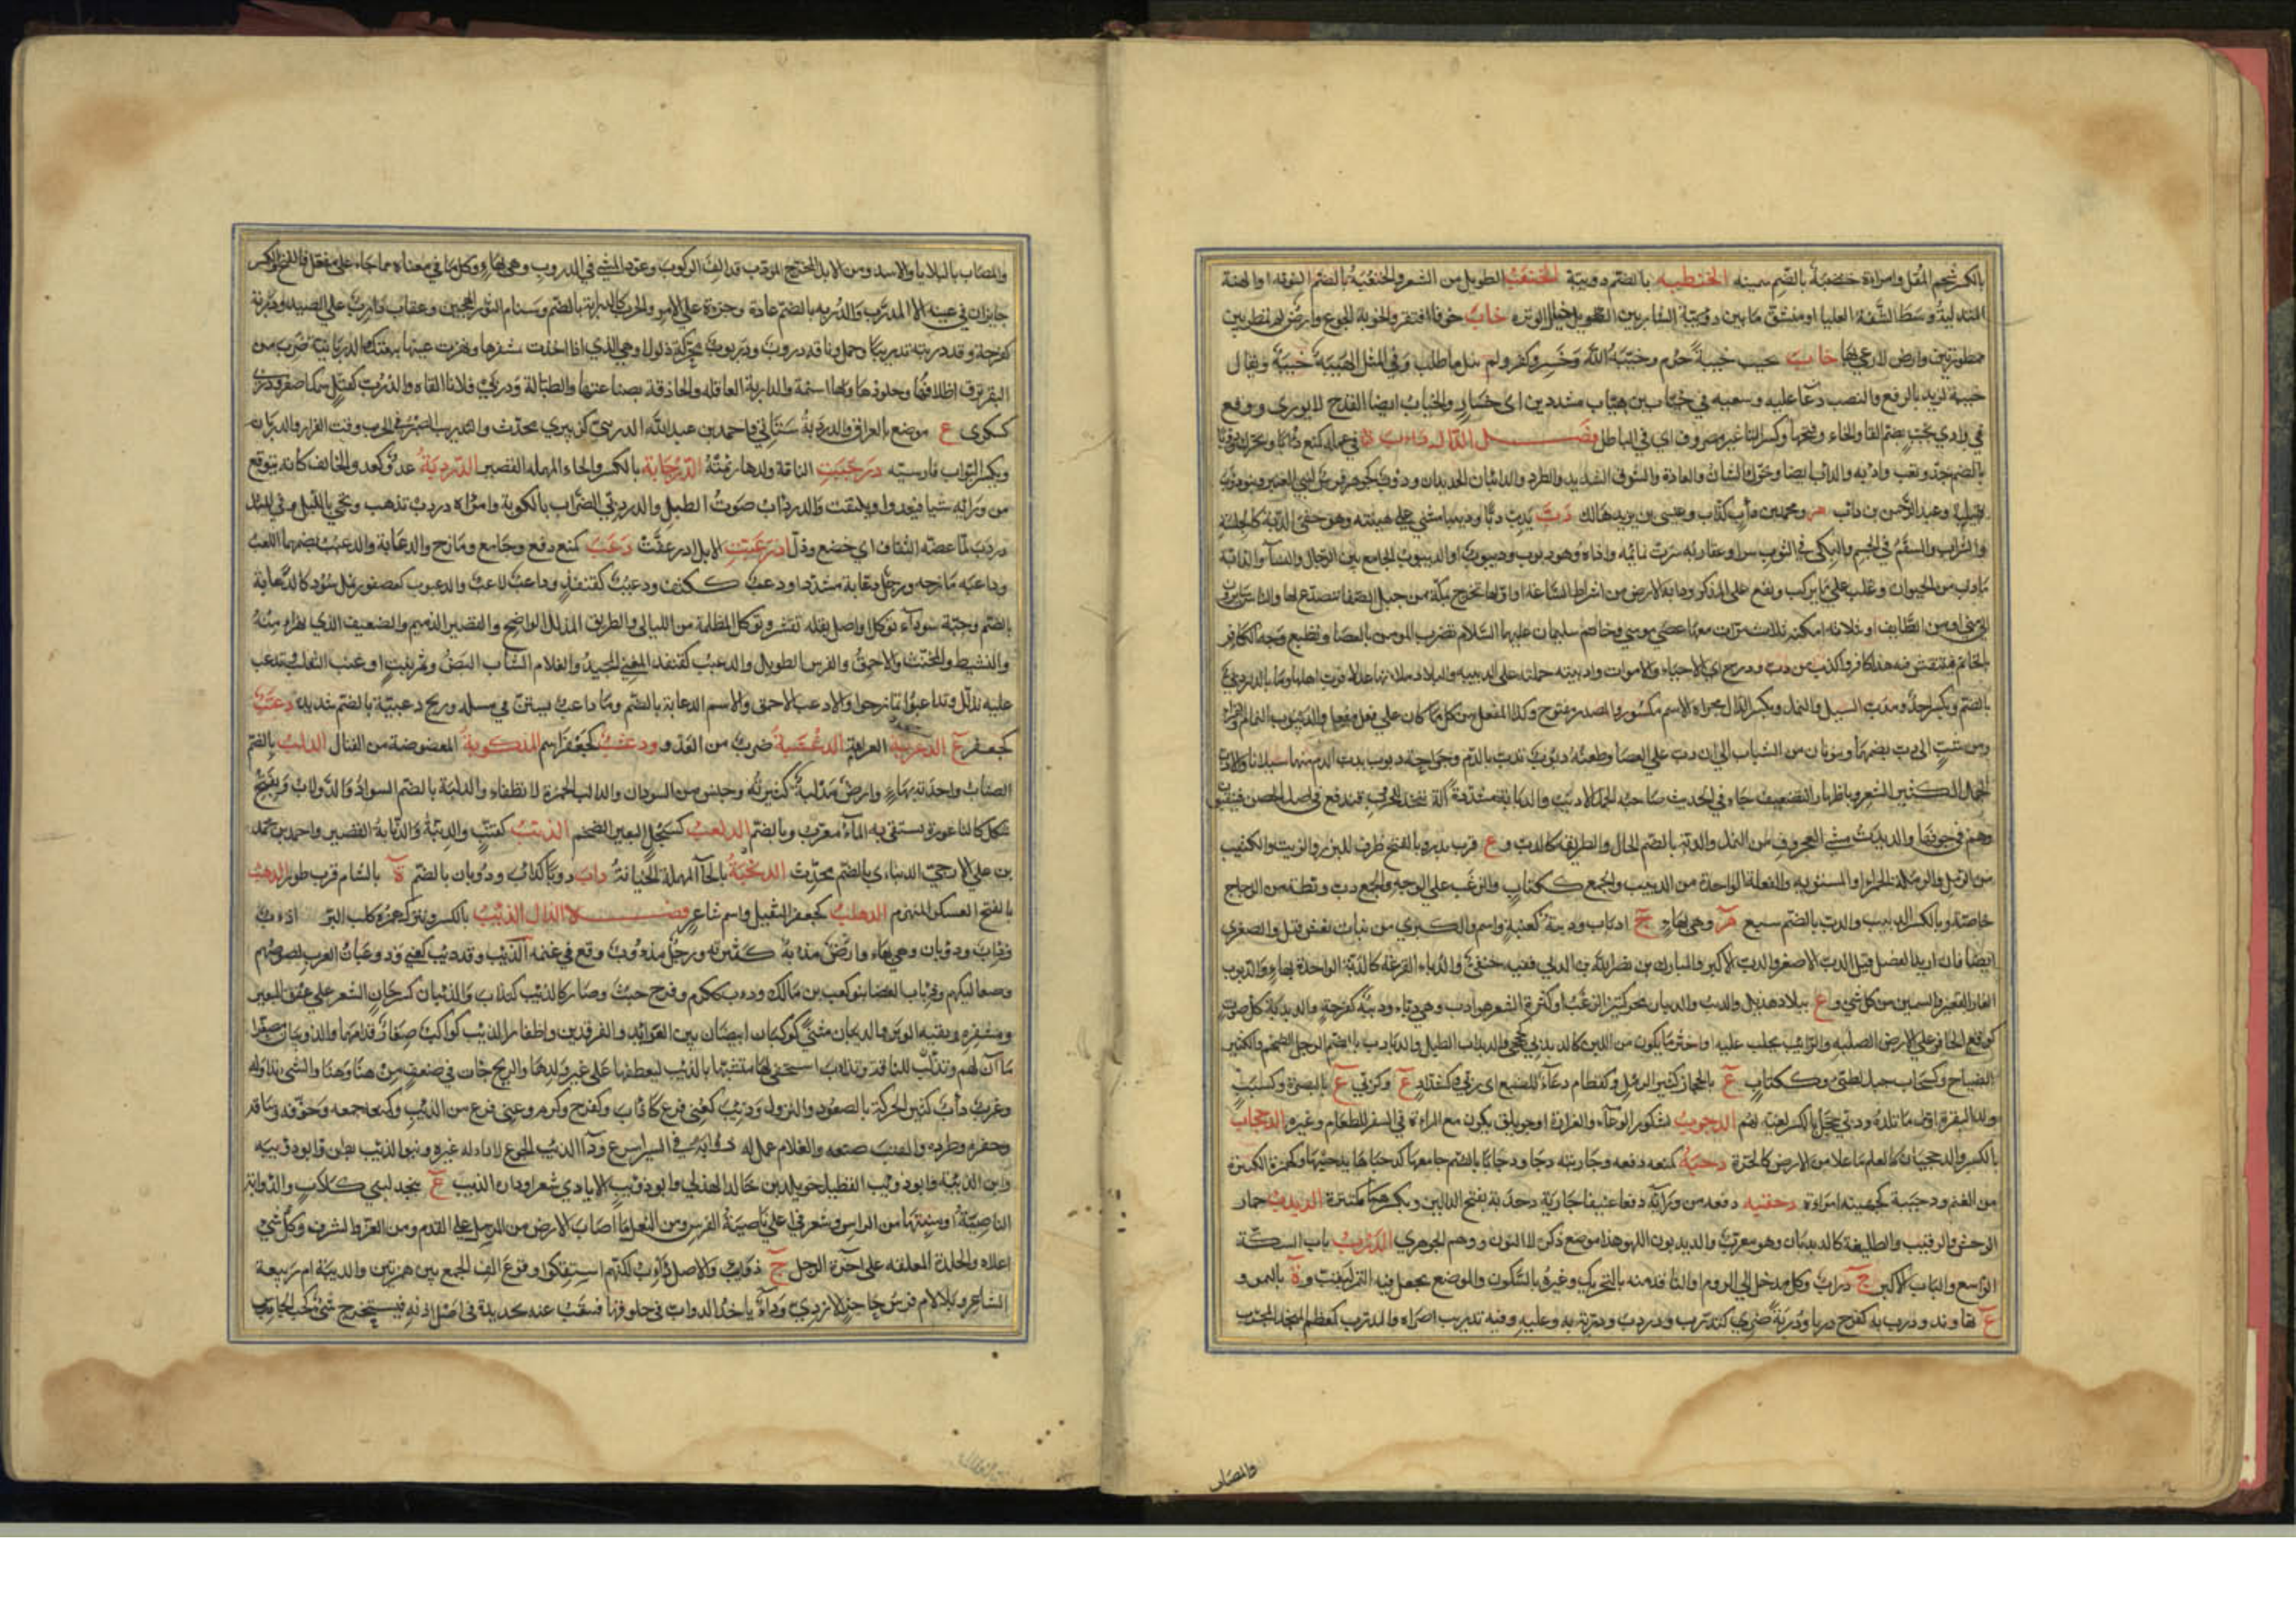 بالكسر نجم المقل وامراة خنضبة بالضم سمينه الخنطبه بالضم دويبة الخنعب الطويل من الشعر والخنعبة بالضم النونه او الهنة
المتدلية وسط الشفة العليا او منشق ما بين الشاربين خاب خوبا افتقر والخوبة الجوع وارض لم تمطر بين
ممطورتين وارض لا رعي بها خاب يخيب خيبة حرم وخيبه الله وخسر وكفر ولم ينل ما طلب وفي المثل الهيبة خيبة ويقال
خيبة لزيد بالرفع والنصب دعا عليه وسعيه في خياب بن هياب مشددين اى خسار والخياب ايضا القدح لا يورى ووقع
في وادي تخيب بضم التا والخاء وفتحها وكسر اليا غير مصروف اي في الباطل فصل الدال داب في عمله كمنع دابا ويحرك ودؤبا
بالضم جد وتعب وادابه والداب ايضا ويحرك الشان والعادة والسوق الشديد والطرد والدائبان الجديدان
وعبد الرحمن بن دائب م ومحمد بن داب كذاب وعيسى بن يزيد هالك دب يدب دبا ودبيبا مشي على هينته وهو خفي الدبة كالجلسة
والشراب والسقم في الجسم والبلى في الثوب سرا وعقاربه سرت نمائمه واذاه وهو دبوب وديبوب او الديبوب الجامع بين الرجال والنساء والدابة
ما دب من الحيوان وغلب على ما يركب ويقع على المذكر ودابة الارض من اشراط الساعة او اولها تخرج بمكة من جبل الصفا ينصدع لها والناس سائرون
الى منى او من الطايف او بثلاثة امكنة ثلاث مرات معها عصى موسى وخاتم سليمان عليهما السلام تضرب المومن بالعصا وتطبع وجه الكافر
بالخاتم فينتقش فيه هذا كافر واكذب من دب ودرج اي الاحياء والاموات وادببته حملته على الدبيب والبلاد ملاتها عدلا فدب اهلها وما بالدار دبي
بالضم ويكسر احد ومدب السيل والنمل ويكسر الدال مجراه الاسم مكسور والمصدر مفتوح وكذا المفعل من كل ما كان على فعل يفعل والديبوب النمام
ومن شب الى دب بضمهما وينونان من الشباب الى ان دب على العصا وطعنة دبوب تدب بالدم وجراحة دبوب يدب الدم منها سيلانا والادب
الجمل الكثير الشعر وباظهار التضعيف جاء في الحديث صاحبة الجمل الادبب والدبابة مشددة آلة تتخذ للحروب فتدفع في اصل الحصن فينقبون
وهم في جوفها والدبدبة مشي العجروف من النمل والدبة بالضم الحال والطريقة كالدب و ع قرب بدر وبالفتح ظرف للبزر والزيت والكثيب
من الرمل والرملة الحمراء او المستوية والفعلة الواحدة من الدبيب والجمع ككتاب والزغب على الوجه والجمع دب وبطة من الزجاج
خاصة وبالكسر الدبيب والدب بالضم سبع م وهي بهاء ج ادباب ودببة كعنبة واسم والكبرى من بنات نعش قيل والصغرى
ايضا فان اريد الفصل قيل الدب الاصغر والدب الاكبر والمبارك بن نصر الله بن الدبي فقيه حنفي والدباء القرع كالدبة الواحدة بهاء والدبوب
الغار القعير والسمين من كل شي و ع ببلاد هذيل والدبب والدببان محركتين الزغب او كثرة الشعر هو ادب وهي دباء ودببة كفرحة والدبدبة كل صوت
كوقع الحافر على الارض الصلبة والرائب يحلب عليه او اخثر ما يكون من اللبن كالدبدبى كجحجبى والدبداب الطبل والدبادب بالضم الرجل الضخم والكثير
الصياح وكسحاب جبل لطيئ وككتاب ع بالحجاز كثير الرمل وكقطام دعاء للضبع اى دبي وكشداد ع وكربي ع بالبصرة وكسبب
ولد البقرة اول ما تلده ودبى حجل بالكسر لعبة لهم الدجوب كصبور الوعاء والغرارة او جويلق يكون مع المراة في السفر للطعام وغيره الدحجاب
بالكسر والدحجبان كالعلمان ما علا من الارض كالحرة دحبه كمنعه دفعه وجاريته دحبا ودحابا بالضم جامعها كدحباها يدحبها وكهمزة الكثيرة
من الغنم ودحيبة كجهينة امراة دحقبه دفعه من ورائه دفعا عنيفا جارية دخدبة بفتح الدالين وبكسرهما مكتنزة الديدب حمار
الوحش والرقيب والطليعة كالديدبان وهو معرب والديدبون اللهو هذا موضع ذكره لا النون ووهم الجوهري الدرب باب السكة
الواسع والباب الاكبر ج دراب وكل مدخل الى الروم او النافذ منه بالتحريك وغيره بالسكون والموضع يجعل فيه التمر ليقب و ة باليمن و
ع بنهاوند ودرب به كفرح دربا ودربة ضري كتدرب ودردب ودربه به وعليه وفيه تدريبا ضراه والمدرب كمعظم المنجد المجرب
والمصاب
والمصاب بالبلايا والاسد ومن الابل المخرج المودب قد الف الركوب وعود المشي في الدروب وهي بهاء وكل ما في معناه مما جاء على مفعل فالفتح والكسر
جايزان في عينه الا المدرب والدربة بالضم عادة وجرءة على الامر والحرب كالدرابة بالضم وسنام الثور الهجين وعقاب دارب على الصيد ودربة
كفرحة وقد دربته تدريبا وجمل وناقة دروب ودربوت محركة ذلول وهي الذي اذا اخذت بمشفرها ونهزت عينها تبعتك والدربانية ضرب من
البقر ترق اظلافها وجلودها ولها اسنمة والداربة العاقلة والحاذقة بصناعتها والطبالة ودربى فلانا القاه والدرب كعتل سمك اصفر ودرنى
كسكرى ع موضع بالعراق والدردبة ستاتي واحمد بن عبد الله الدربي كزبيري محدث والتدريب الصبر في الحرب وقت الفرار والدربان
ويكسر البواب فارسيته درجبت الناقة ولدها رئمته الدرحابة بالكسر والحاء المهملة القصير الدردبة عدو كعدو الخائف كانه يتوقع
من ورائه شيا فيعدو ويلتفت والدرداب صوت الطبل والدردبي الضراب بالكوبة وامراة دردب تذهب وتجيء بالليل وفي المثل
دردب لما عضه الثقاف اي خضع وذل ادرعبت الابل ادرعفت دعب كمنع دفع وجامع ومازح والدعابة والدعبب بضمهما اللعب
وداعبه مازحه ورجل دعابة مشددا ودعب ككتف ودعبب كقنفذ وداعب لاعب والدعبوب كعصفور نمل سود كالدعابة
بالضم وحبة سوداء توكل او اصل بقلة تقشر وتوكل والمظلمة من الليالي والطريق المذلل الواضح والقصير الدميم والضعيف الذي يهزا منه
والنشيط والمخنث والاحمق والفرس الطويل والدعبب كقنفذ المغني المجيد والغلام الشاب البض وثمر نبت او عنب الثعلب وتدعب
عليه تدلل وتداعبوا تمازحوا والادعب الاحمق والاسم الدعابة بالضم وماء داعب يستن في سيله وريح دعبية بالضم شديدة دعتب
كجعفر ع الدعربة العرامة الدعسبة ضرب من العدو ودعشب كجعفر اسم الدكوبة المعضوضة من القتال الدلب بالضم
الصنار واحدته بهاء وارض مدلبة كثيرته وجنس من السودان والدالب الجمرة لا تطفاء والدلبة بالضم السواد والدولاب ويفتح
شكل كالناعورة يستقى به الماء معرب وبالضم الدلعب كسبحل البعير الضخم الدنب كقنب والدنبة والدنابة القصير واحمد بن محمد
بن علي الازجي الدنباي بالضم محدث الدنحبة بالحاء المهملة الخيانة داب دوبا كداب ودوبان بالضم ة بالشام قرب صور الدهب
بالفتح العسكر المنهزم الدهلب كجعفر الثقيل واسم شاعر فصل الذال الذئب بالكسر ويترك همزه كلب البر اذوب
وذئاب وذؤبان وهي بهاء وارض مذابة كثيرته ورجل مذؤوب وقع في غنمه الذئب وقد ذئب كعني وذوبان العرب لصوصهم
وصعاليكهم وذئاب الغضا بنو كعب بن مالك وذؤب ككرم وفرح خبث وصار كالذئب كتذاب والذئبان كسرحان الشعر على عنق البعير
ومشفره وبقية الوبر والذئبان مثنى كوكبان ابيضان بين العوائذ والفرقدين واظفار الذئب كواكب صغار قدامهما والذؤيبان مصغرا
ماآن لهم وتذاب للناقة وتذاءب استخفى لها متشبها بالذئب ليعطفها على غير ولدها والريح جات في ضعف من هنا وهنا والشي تداوله
وغرب ذاب كثير الحركة بالصعود والنزول وذئب كعني فزع كاذاب وكفرح وكرم وعني فزع من الذئب وكمنع جمعه وخوفه وساقه
وحقره وطرده والقتب صنعه والغلام عمل له ذؤابة وفي السير اسرع وداء الذئب الجوع لا داء له غيره وبنو الذئب بطن وابو ذؤيبة
وابن الذئبة وابو ذؤيب القطيل خويلد بن خالد الهذلي وابو ذؤيب الايادي شعراء ودارة الذئب ع بنجد لبني كلاب والذؤابة
الناصية او منبتها من الراس وشعر في اعلى ناصية الفرس ومن النعل ما اصاب الارض من المرسل على القدم ومن العز والشرف وكل شي
اعلاه والجلدة المعلقة على آخرة الرحل ج ذوائب والاصل ذآئب لكنهم استثقلوا وقوع الف الجمع بين همزتين والذئبة ام ربيعة
الشاعر وبلا لام فرس حاجز الازدي وداء ياخذ الدواب في حلوقها فينقب عنه بحديدة في اصل اذنه فيستخرج شي كحب الجاورس